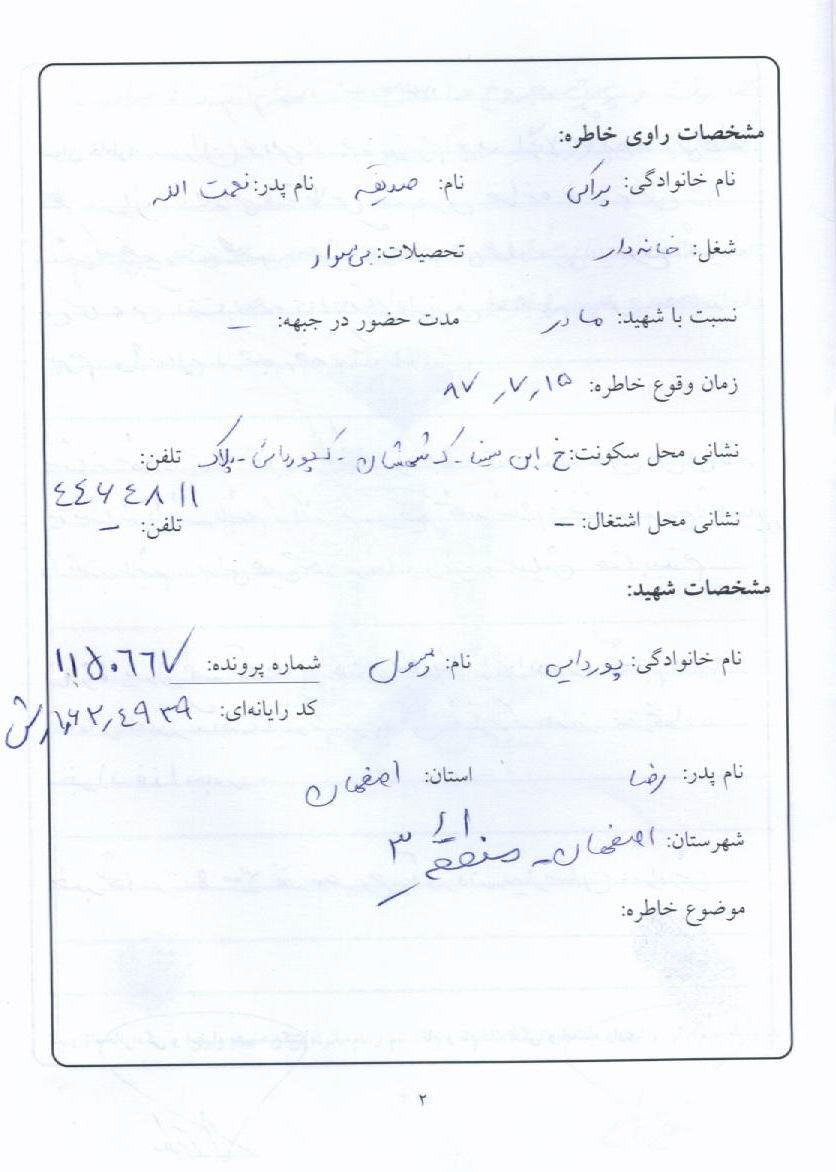 مشخصات راوی خاطره:
نام خانوادگی: براتی نام: صدیقه نام پدر: نعمت الله
شغل: خانه دار تحصیلات: بی سواد
نسبت با شهید: مادر مدت حضور در جبهه: –
زمان وقوع خاطره: ۸۷٫۷٫۱۵
نشانی محل سکونت: خ ابن سینا - ک شمشیان - پلاک تلفن:
۴۴۶۴۸۱۱
نشانی محل اشتغال: – تلفن: –
مشخصات شهید:
نام خانوادگی: پوردایی نام: رسول شماره پرونده: ۱۱۵۰۶۶۷
کد رایانه‌ای:
نام پدر: رضا استان: اصفهان
شهرستان: اصفهان - منطقه ۳
موضوع خاطره:
۲